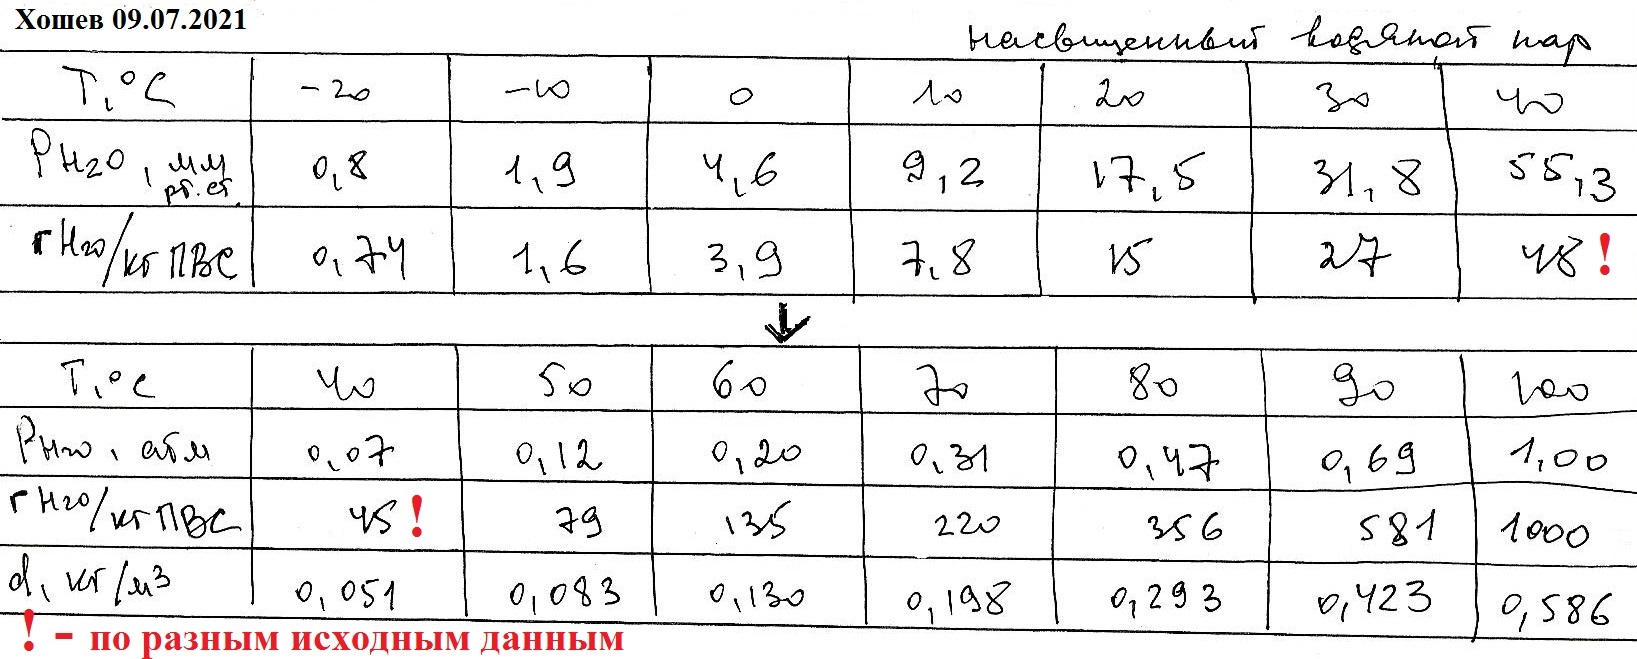 Хошев 09.07.2021
насыщенный водяной пар
T, °C -20 -10 0 10 20 30 40
PH2O, мм рт. ст. 0,8 1,9 4,6 9,2 17,5 31,8 55,3
гH2O/кг ПВС 0,74 1,6 3,9 7,8 15 27 48!
T, °C 40 50 60 70 80 90 100
PH2O, атм 0,07 0,12 0,20 0,31 0,47 0,69 1,00
гH2O/кг ПВС 45! 79 135 220 356 581 1000
d, кг/м3 0,051 0,083 0,130 0,198 0,293 0,423 0,586
! - по разным исходным данным